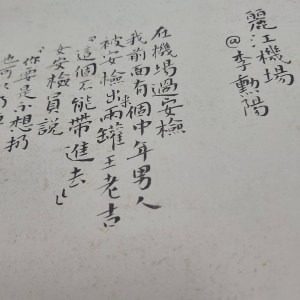 麗江機場
@李勲陽
在機場過安檢
我前面有個中年男人
被安檢出來兩罐王老吉
“這個不能帶進去”
女安檢員說
“你要是不想扔